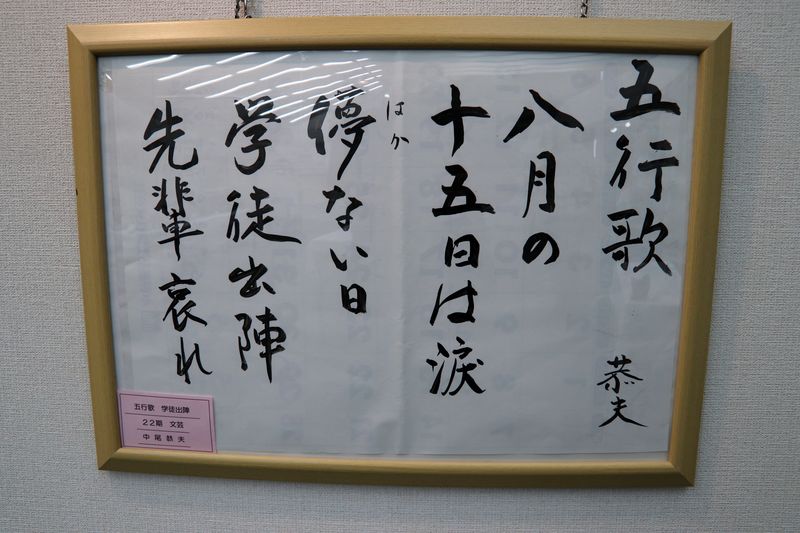 五行歌
恭夫
八月の
十五日は涙
はか
儚ない日
学徒出陣
先輩哀れ
五行歌 学徒出陣
22期 文芸
中尾 恭夫